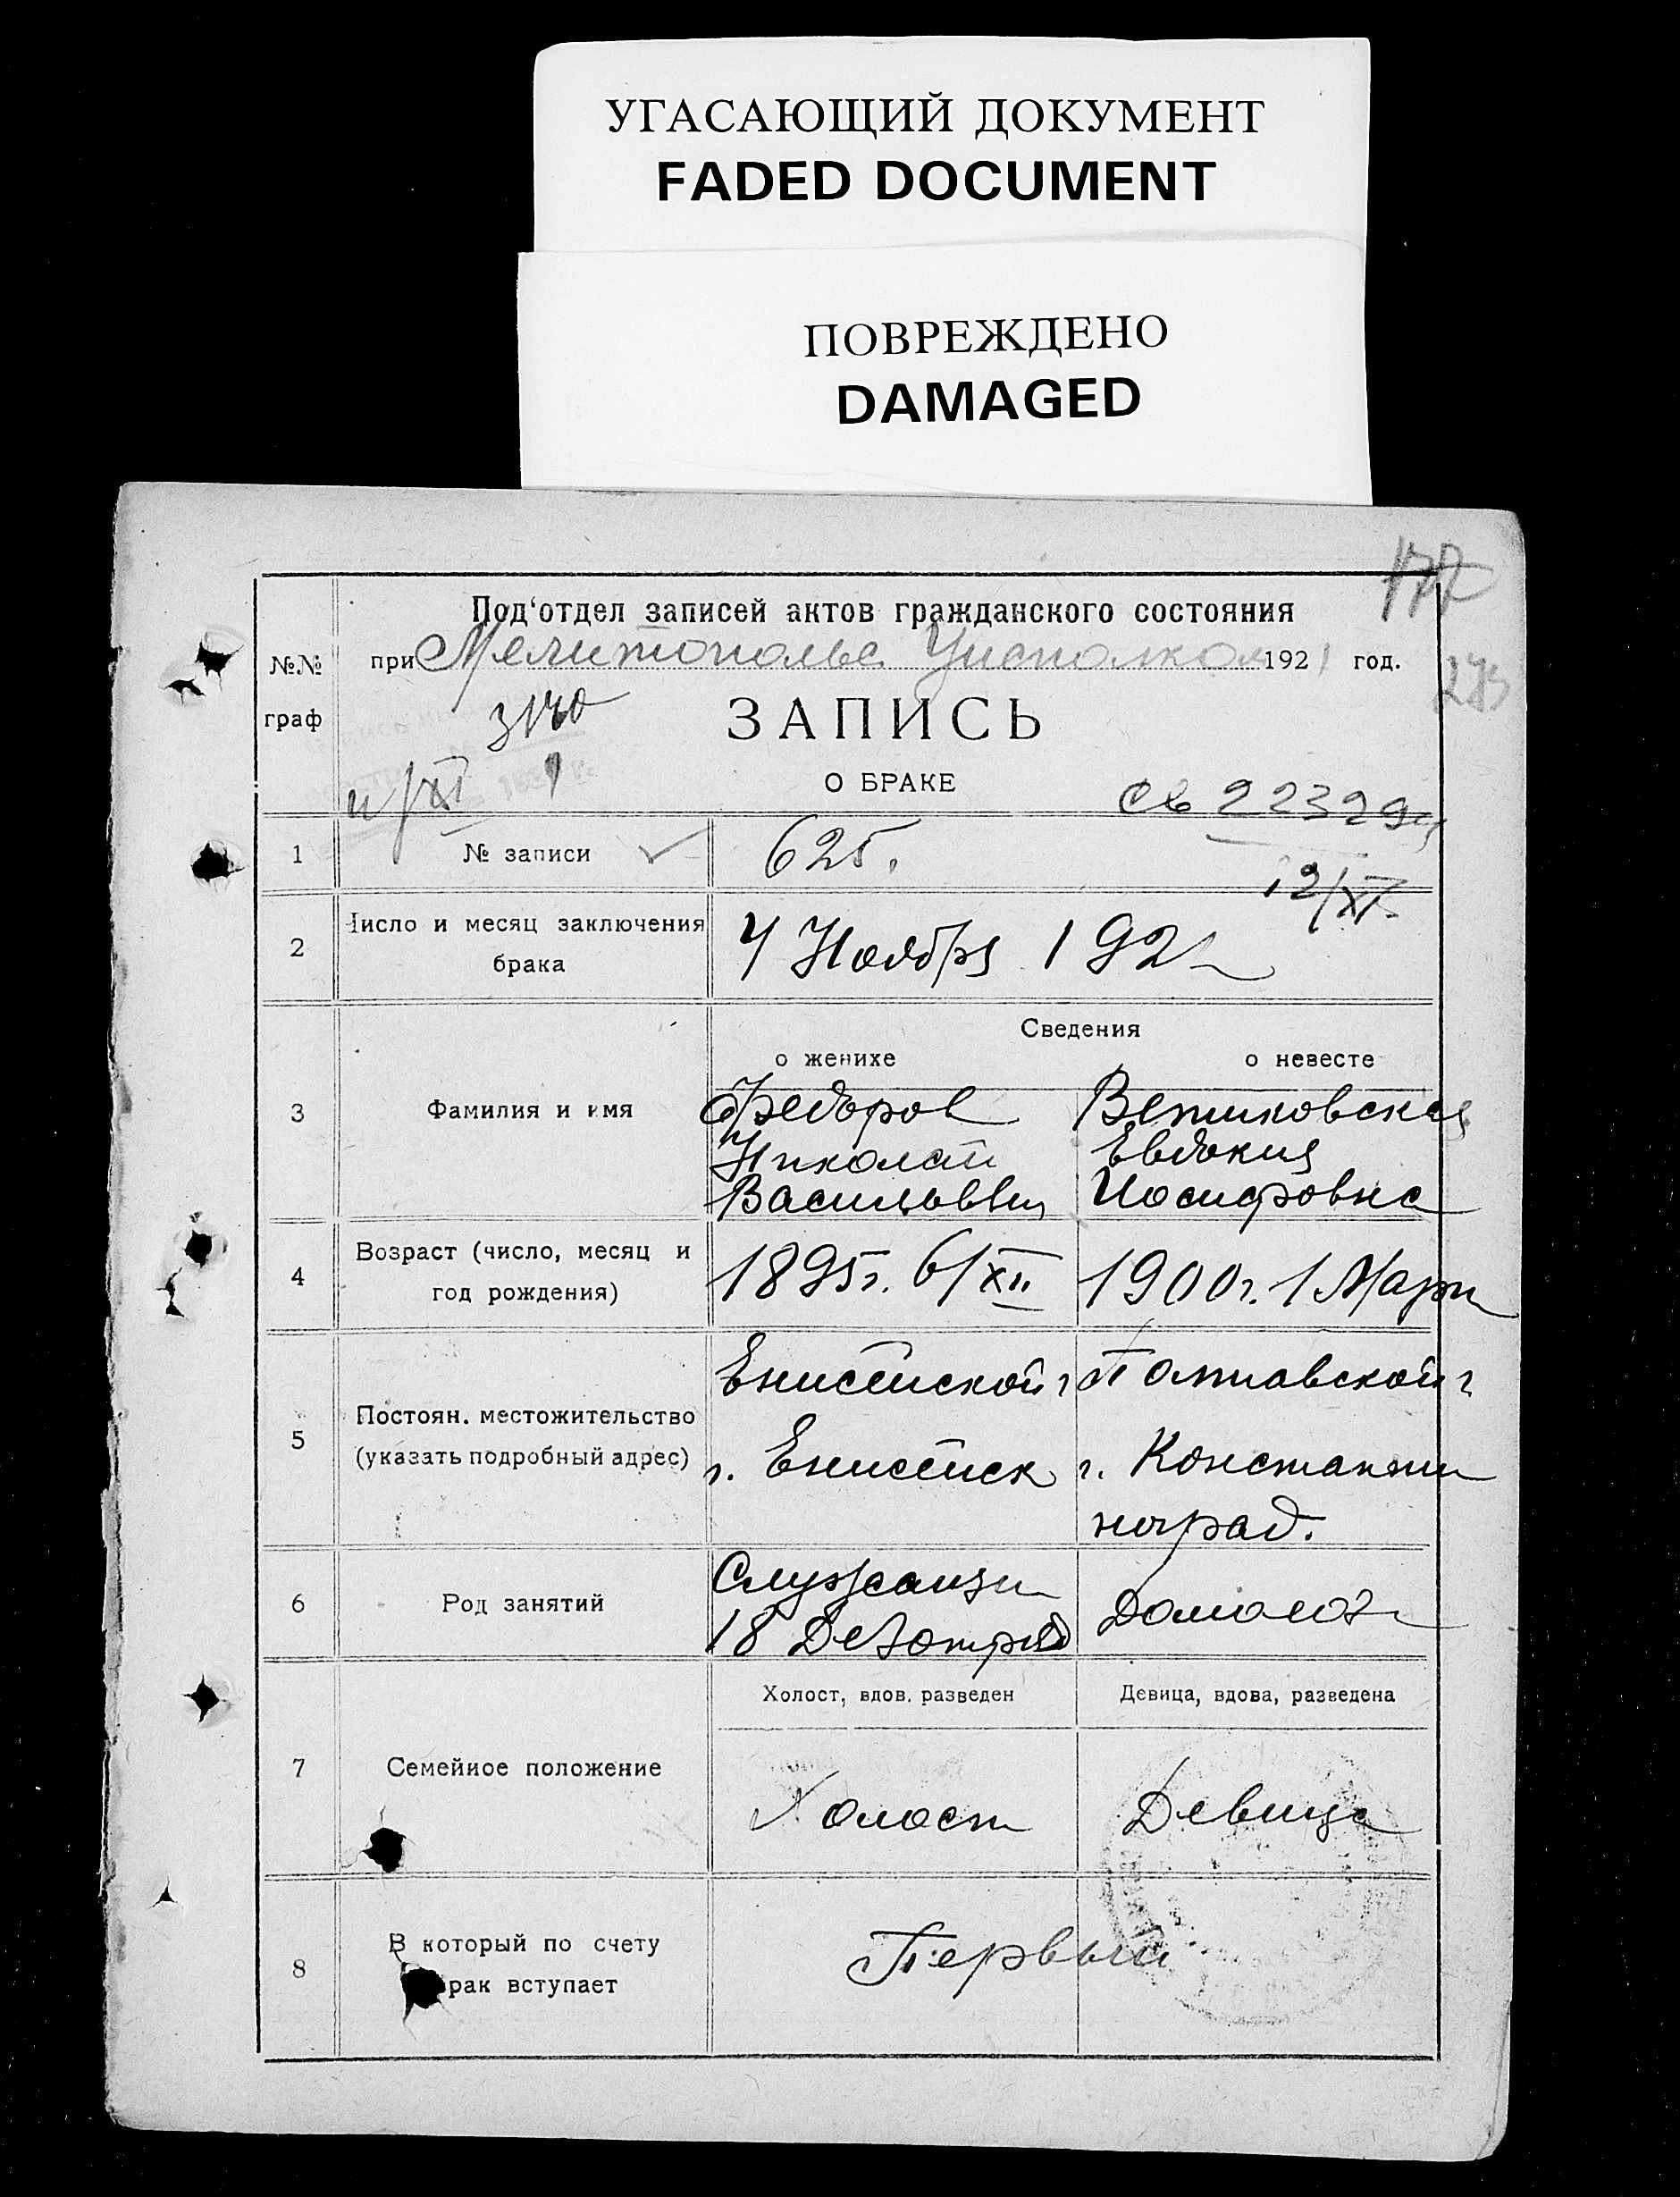 УГАСАЮЩИЙ ДОКУМЕНТ
FADED DOCUMENT
ПОВРЕЖДЕНО
DAMAGED
177
Под'отдел записей актов гражданского состояния
№№ при Мелитопольс. Уисполком 1921 год.
граф
ЗАПИСЬ
О БРАКЕ
св 22329
12/XI
1 № записи 625.
2 Число и месяц заключения 4 Ноября 192
брака
Сведения
о женихе о невесте
3 Фамилия и имя Федоров
Николай Евдокия
Васильевич Иосифовна
4 Возраст (число, месяц и 1895г. 6/XII 1900г. 1 Март
год рождения)
Енисейской г Полтавской г
5 Постоян. местожительство г. Енисейск г. Константи
(указать подробный адрес)
ноград.
6 Род занятий
18
Холост, вдов. разведен Девица, вдова, разведена
7 Семейное положение Холост Девица
8 В который по счету Первый
рак вступает